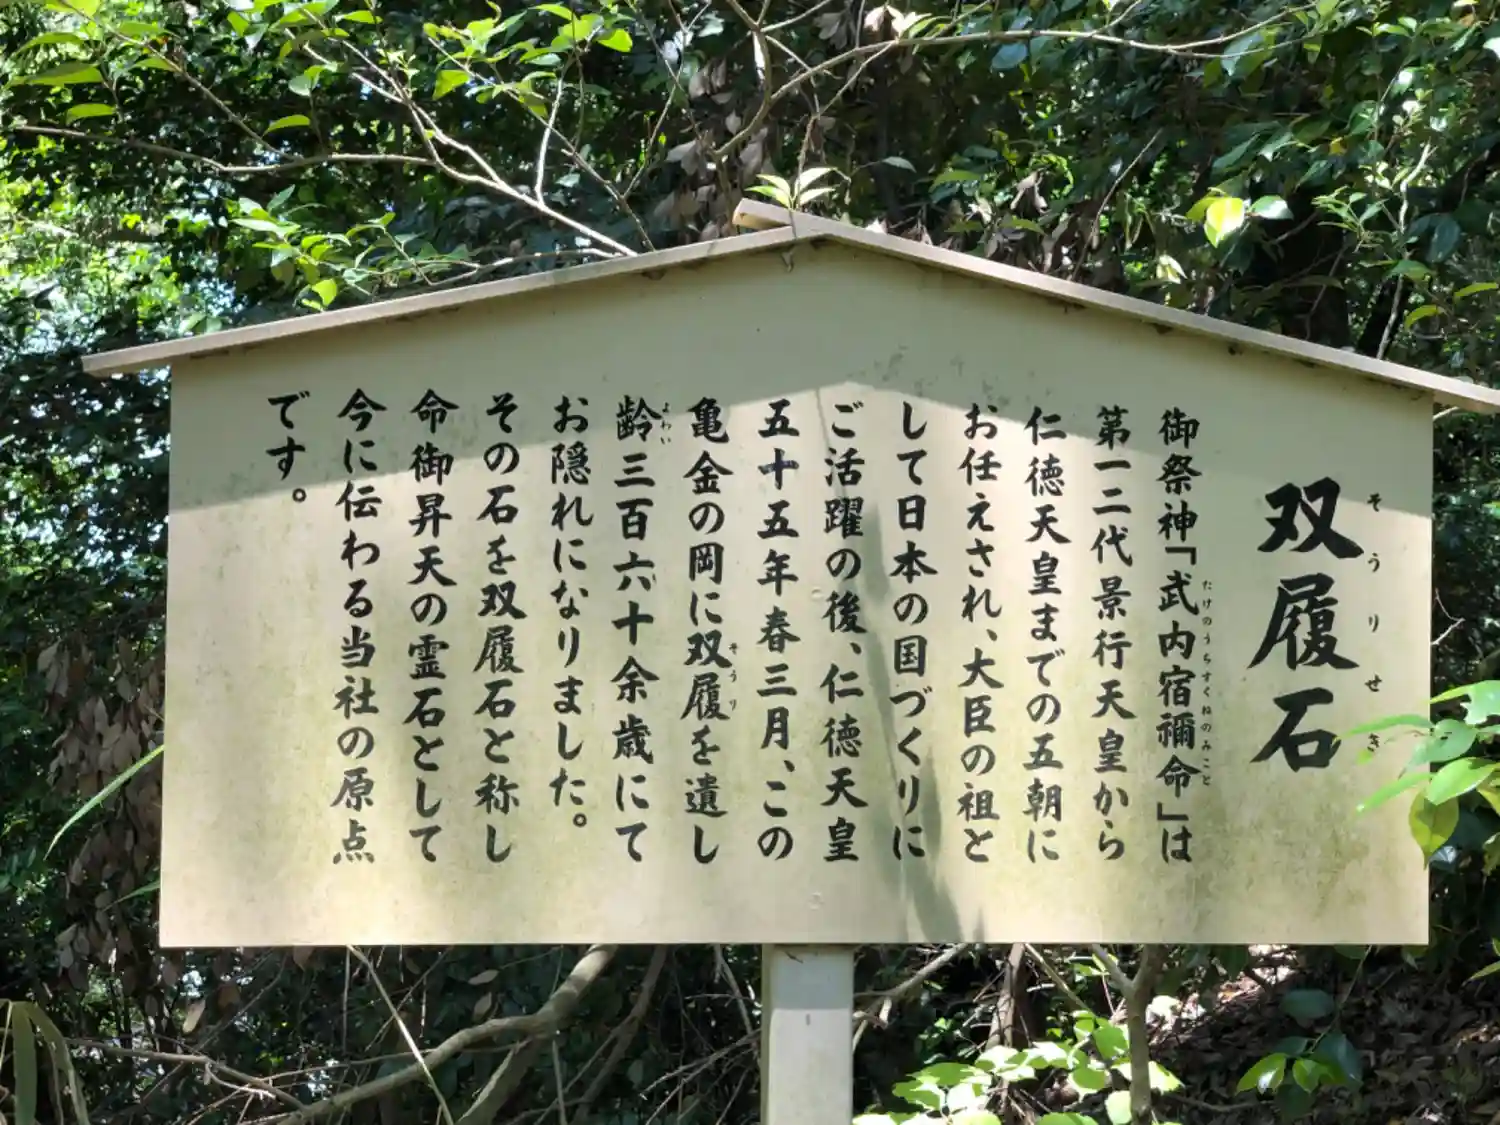 双履石
そうりせき
御祭神「武内宿禰命」は
たけのうちすくねのみこと
第一二代景行天皇から
仁徳天皇までの五朝に
お任えされ、大臣の祖と
して日本の国づくりに
ご活躍の後、仁徳天皇
五十五年春三月、この
亀金の岡に双履を遺し
そうり
齢三百六十余歳にて
よわい
お隠れになりました。
その石を双履石と称し
命御昇天の霊石として
今に伝わる当社の原点
です。